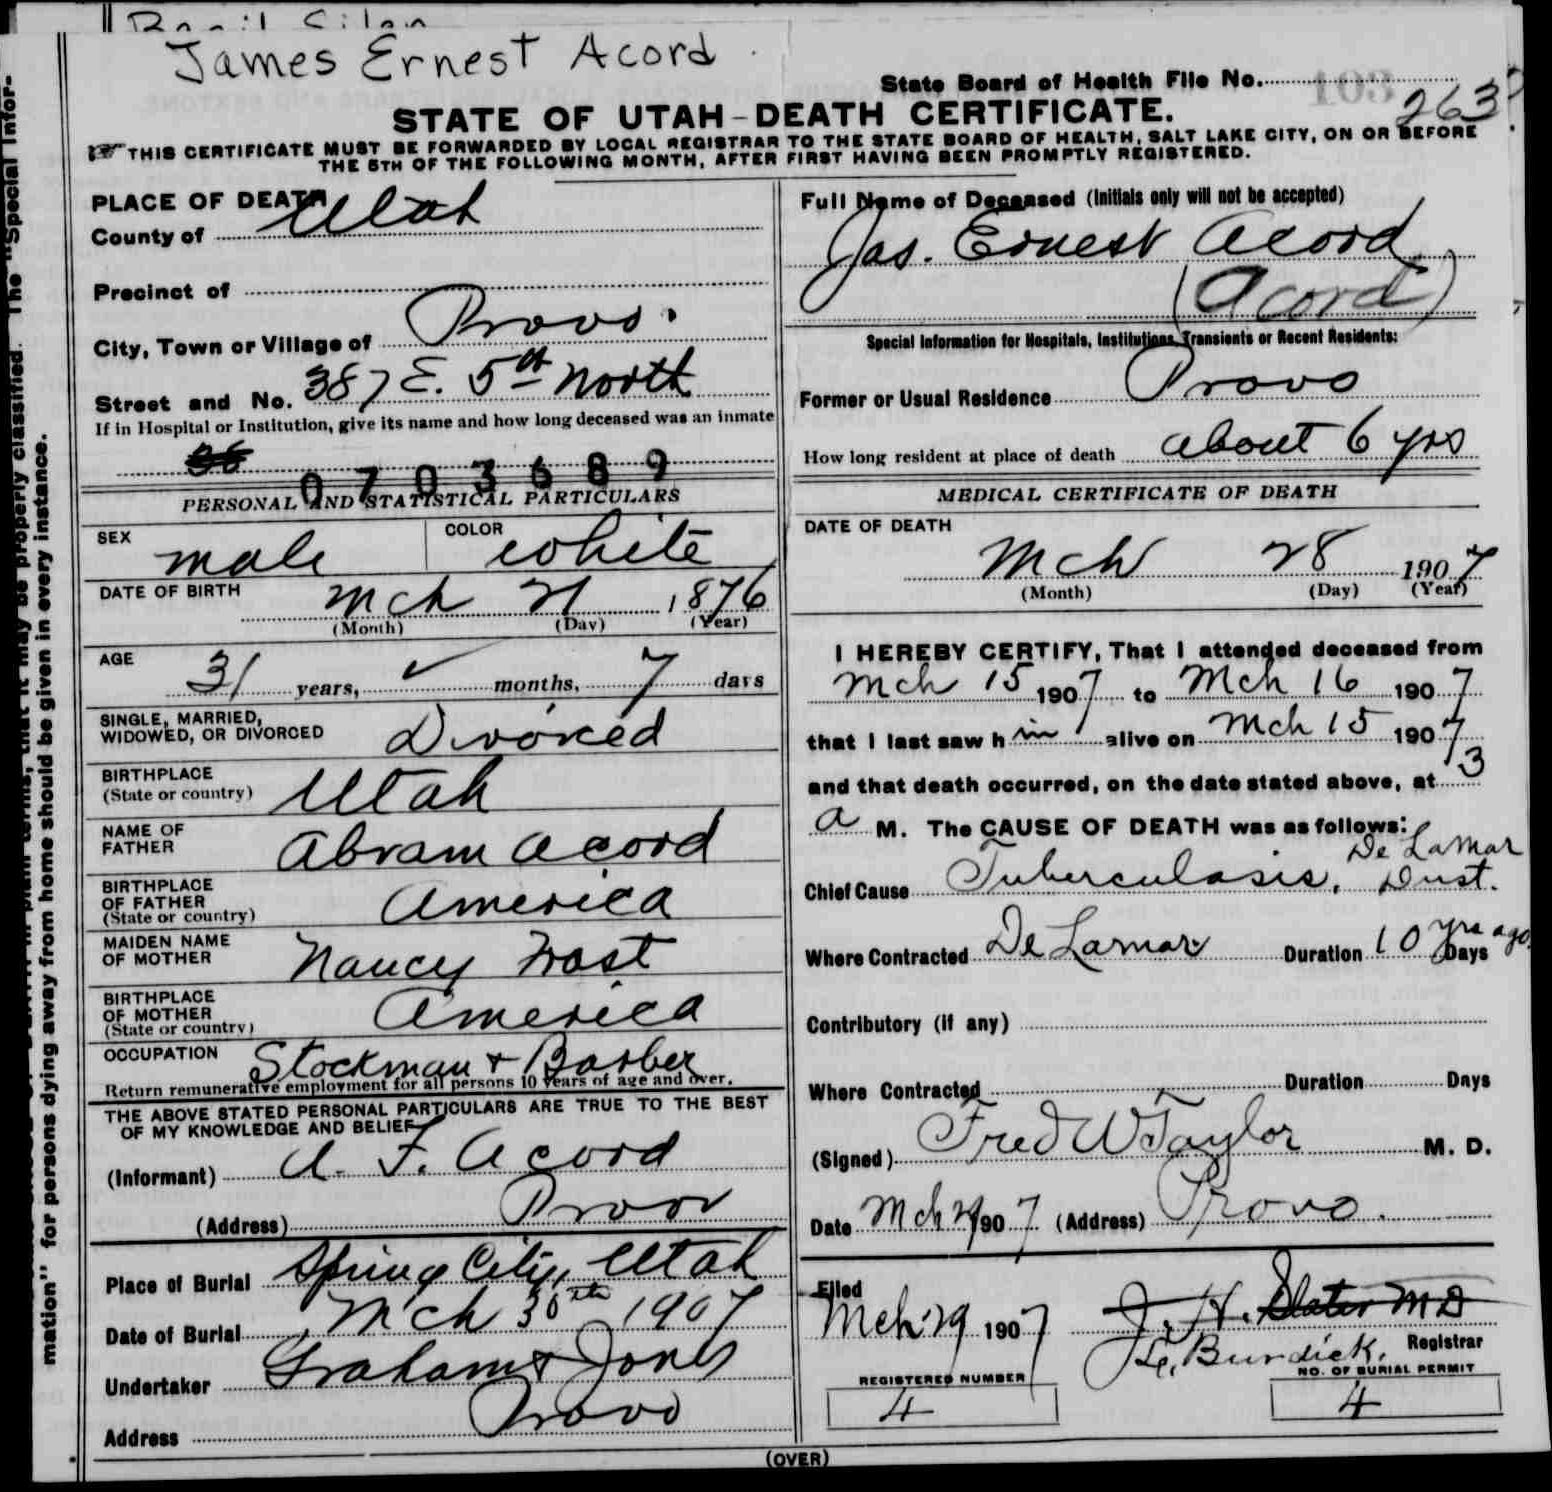 James Ernest Acord
State Board of Health File No. 263
STATE OF UTAH-DEATH CERTIFICATE.
THIS CERTIFICATE MUST BE FORWARDED BY LOCAL REGISTRAR TO THE STATE BOARD OF HEALTH, SALT LAKE CITY, ON OR BEFORE
THE 5TH OF THE FOLLOWING MONTH, AFTER FIRST HAVING BEEN PROMPTLY REGISTERED.
PLACE OF DEATH
County of Utah
Precinct of
City, Town or Village of Provo.
Street and No. 387 E. 5th North
If in Hospital or Institution, give its name and how long deceased was an inmate
0703689
PERSONAL AND STATISTICAL PARTICULARS
SEX male COLOR white
DATE OF BIRTH mch 21 1876
(Month) (Day) (Year)
AGE 31 years, ✓ months, 7 days
SINGLE, MARRIED,
WIDOWED, OR DIVORCED Divorced
BIRTHPLACE
(State or country) Utah
NAME OF
FATHER Abram Acord
BIRTHPLACE
OF FATHER
(State or country) America
MAIDEN NAME
OF MOTHER Nancy Frost
BIRTHPLACE
OF MOTHER
(State or country) America
OCCUPATION Stockman + Barber
Return remunerative employment for all persons 10 years of age and over.
THE ABOVE STATED PERSONAL PARTICULARS ARE TRUE TO THE BEST
OF MY KNOWLEDGE AND BELIEF
(Informant) A. F. Acord
(Address) Provo
Place of Burial Spring City, Utah
Date of Burial Mch 30th 1907
Undertaker Graham & Jones
Address Provo
Full Name of Deceased (Initials only will not be accepted)
Jas. Ernest Acord
(Acord)
Special Information for Hospitals, Institutions, Transients or Recent Residents:
Former or Usual Residence Provo
How long resident at place of death about 6 yrs
MEDICAL CERTIFICATE OF DEATH
DATE OF DEATH
Mch 28 1907
(Month) (Day) (Year)
I HEREBY CERTIFY, That I attended deceased from
Mch 15 1907 to Mch 16 1907
that I last saw h im alive on Mch 15 1907
and that death occurred, on the date stated above, at 3
a M. The CAUSE OF DEATH was as follows:
Chief Cause Tuberculosis, De Lamar Dust.
Where Contracted De Lamar Duration 10 yrs ago Days
Contributory (if any)
Where Contracted Duration Days
(Signed) Fred W Taylor M. D.
Date Mch 29 1907 (Address) Provo.
Filed
Mch 29 1907 J. H. Slater MD
Burdick, Registrar
REGISTERED NUMBER NO. OF BURIAL PERMIT
4 4
(OVER)
mation" for persons dying away from home should be given in every instance.